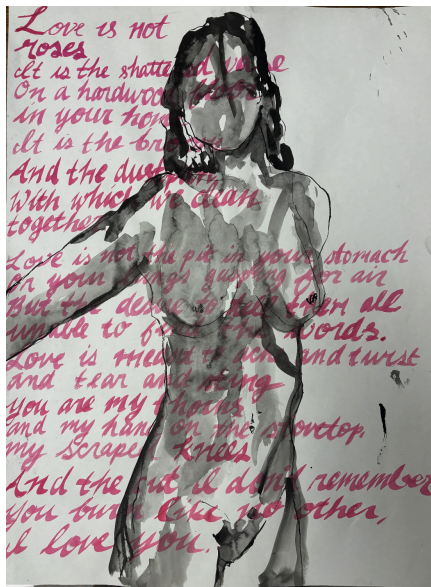 Love is not
roses
It is the shattered vase
On a hardwood floor
in your home
It is the broom
And the dustpan
With which we clean
together
Love is not the pit in your stomach
or your lungs gasping for air
But the desire to tell them all
unable to find the words.
Love is meant to bend and twist
and tear and sting
You are my thorns
and my hand on the stovetop.
my scraped knees
And the cut I don't remember
You burn like no other,
I love you.